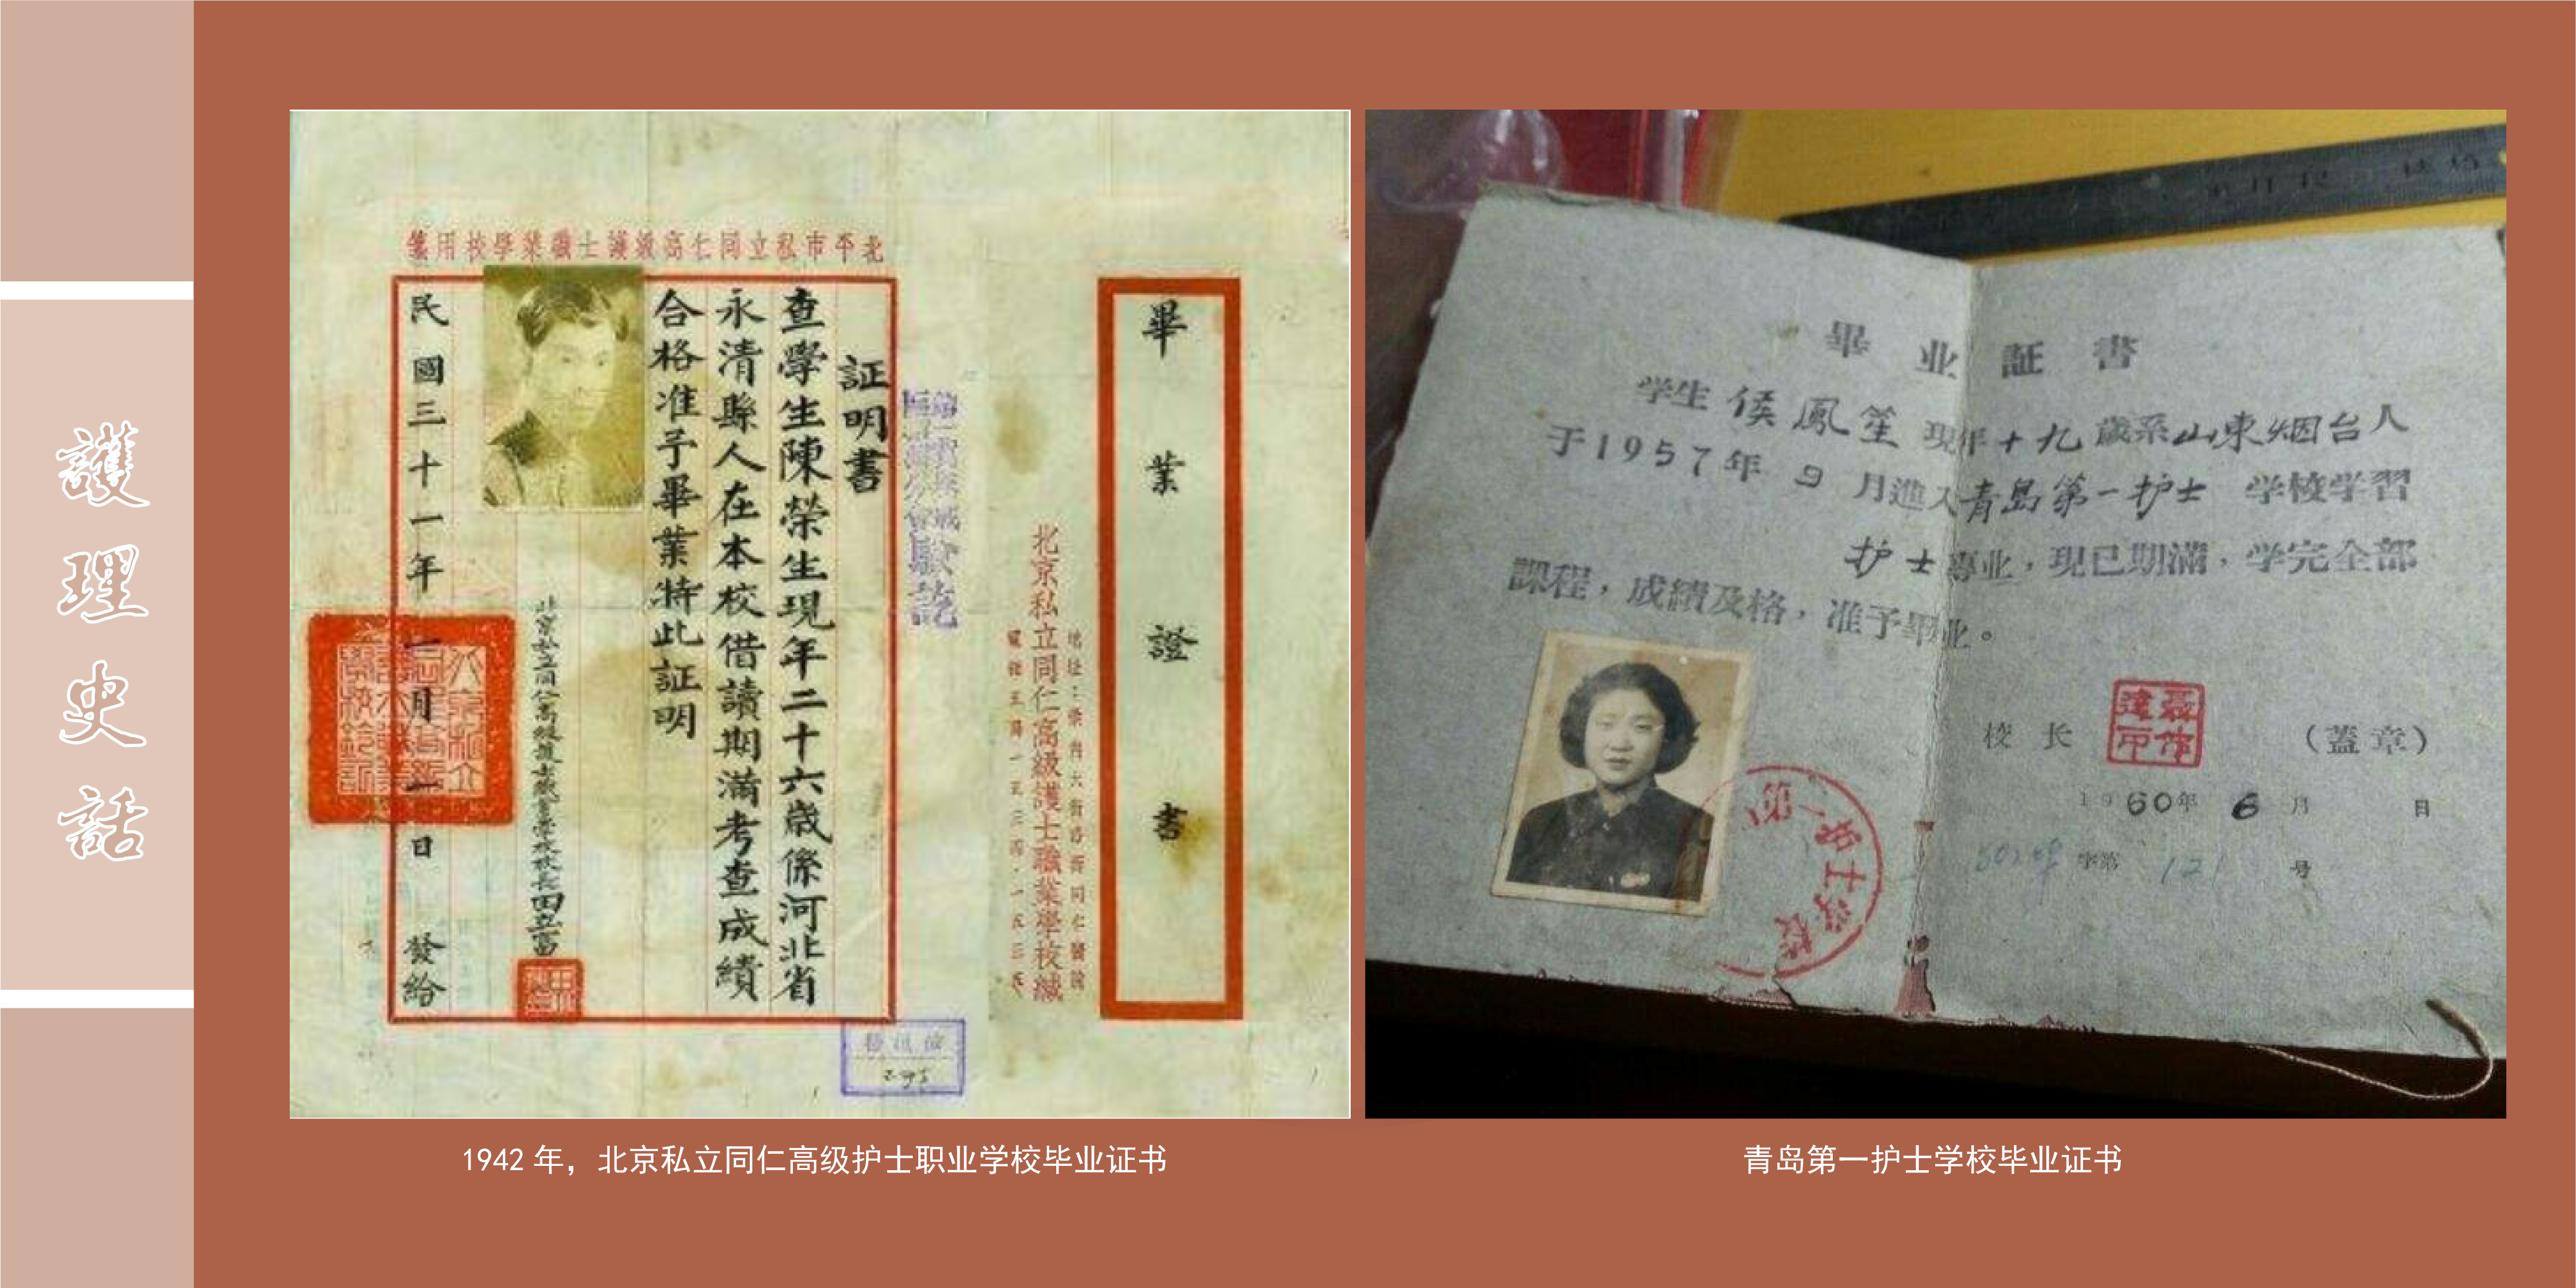 護理史話
北平市私立同仁高級護士職業學校用箋
証明書
查學生陳榮生現年二十六歲係河北省
永清縣人在本校借讀期滿考查成績
合格准予畢業特此証明
北京私立同仁高級護士職業學校校長田立富
民國三十一年一月一日發給
畢業證書
北京私立同仁高級護士職業學校緘
1942 年，北京私立同仁高级护士职业学校毕业证书
畢业証書
学生 侯鳳笙 現年十九歲系山東烟台人
于1957年 9 月進入青島第一护士 学校学習
护士專业，現已期滿，学完全部
課程，成績及格，准予畢业。
校长 （蓋章）
1960年 6 月 日
字第 121 号
第一护士学校
青岛第一护士学校毕业证书